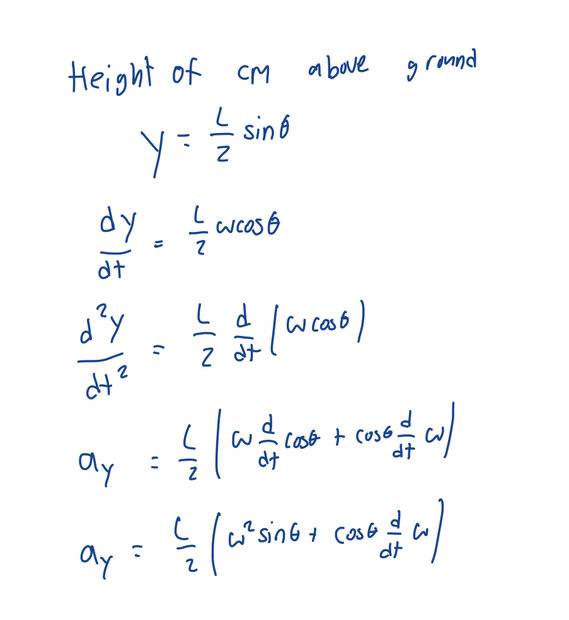 Height of CM above ground
y = L/2 sinθ
dy/dt = L/2 ωcosθ
d²y/dt² = L/2 d/dt (ωcosθ)
ay = L/2 (ω d/dt cosθ + cosθ d/dt ω)
ay = L/2 (ω²sinθ + cosθ d/dt ω)